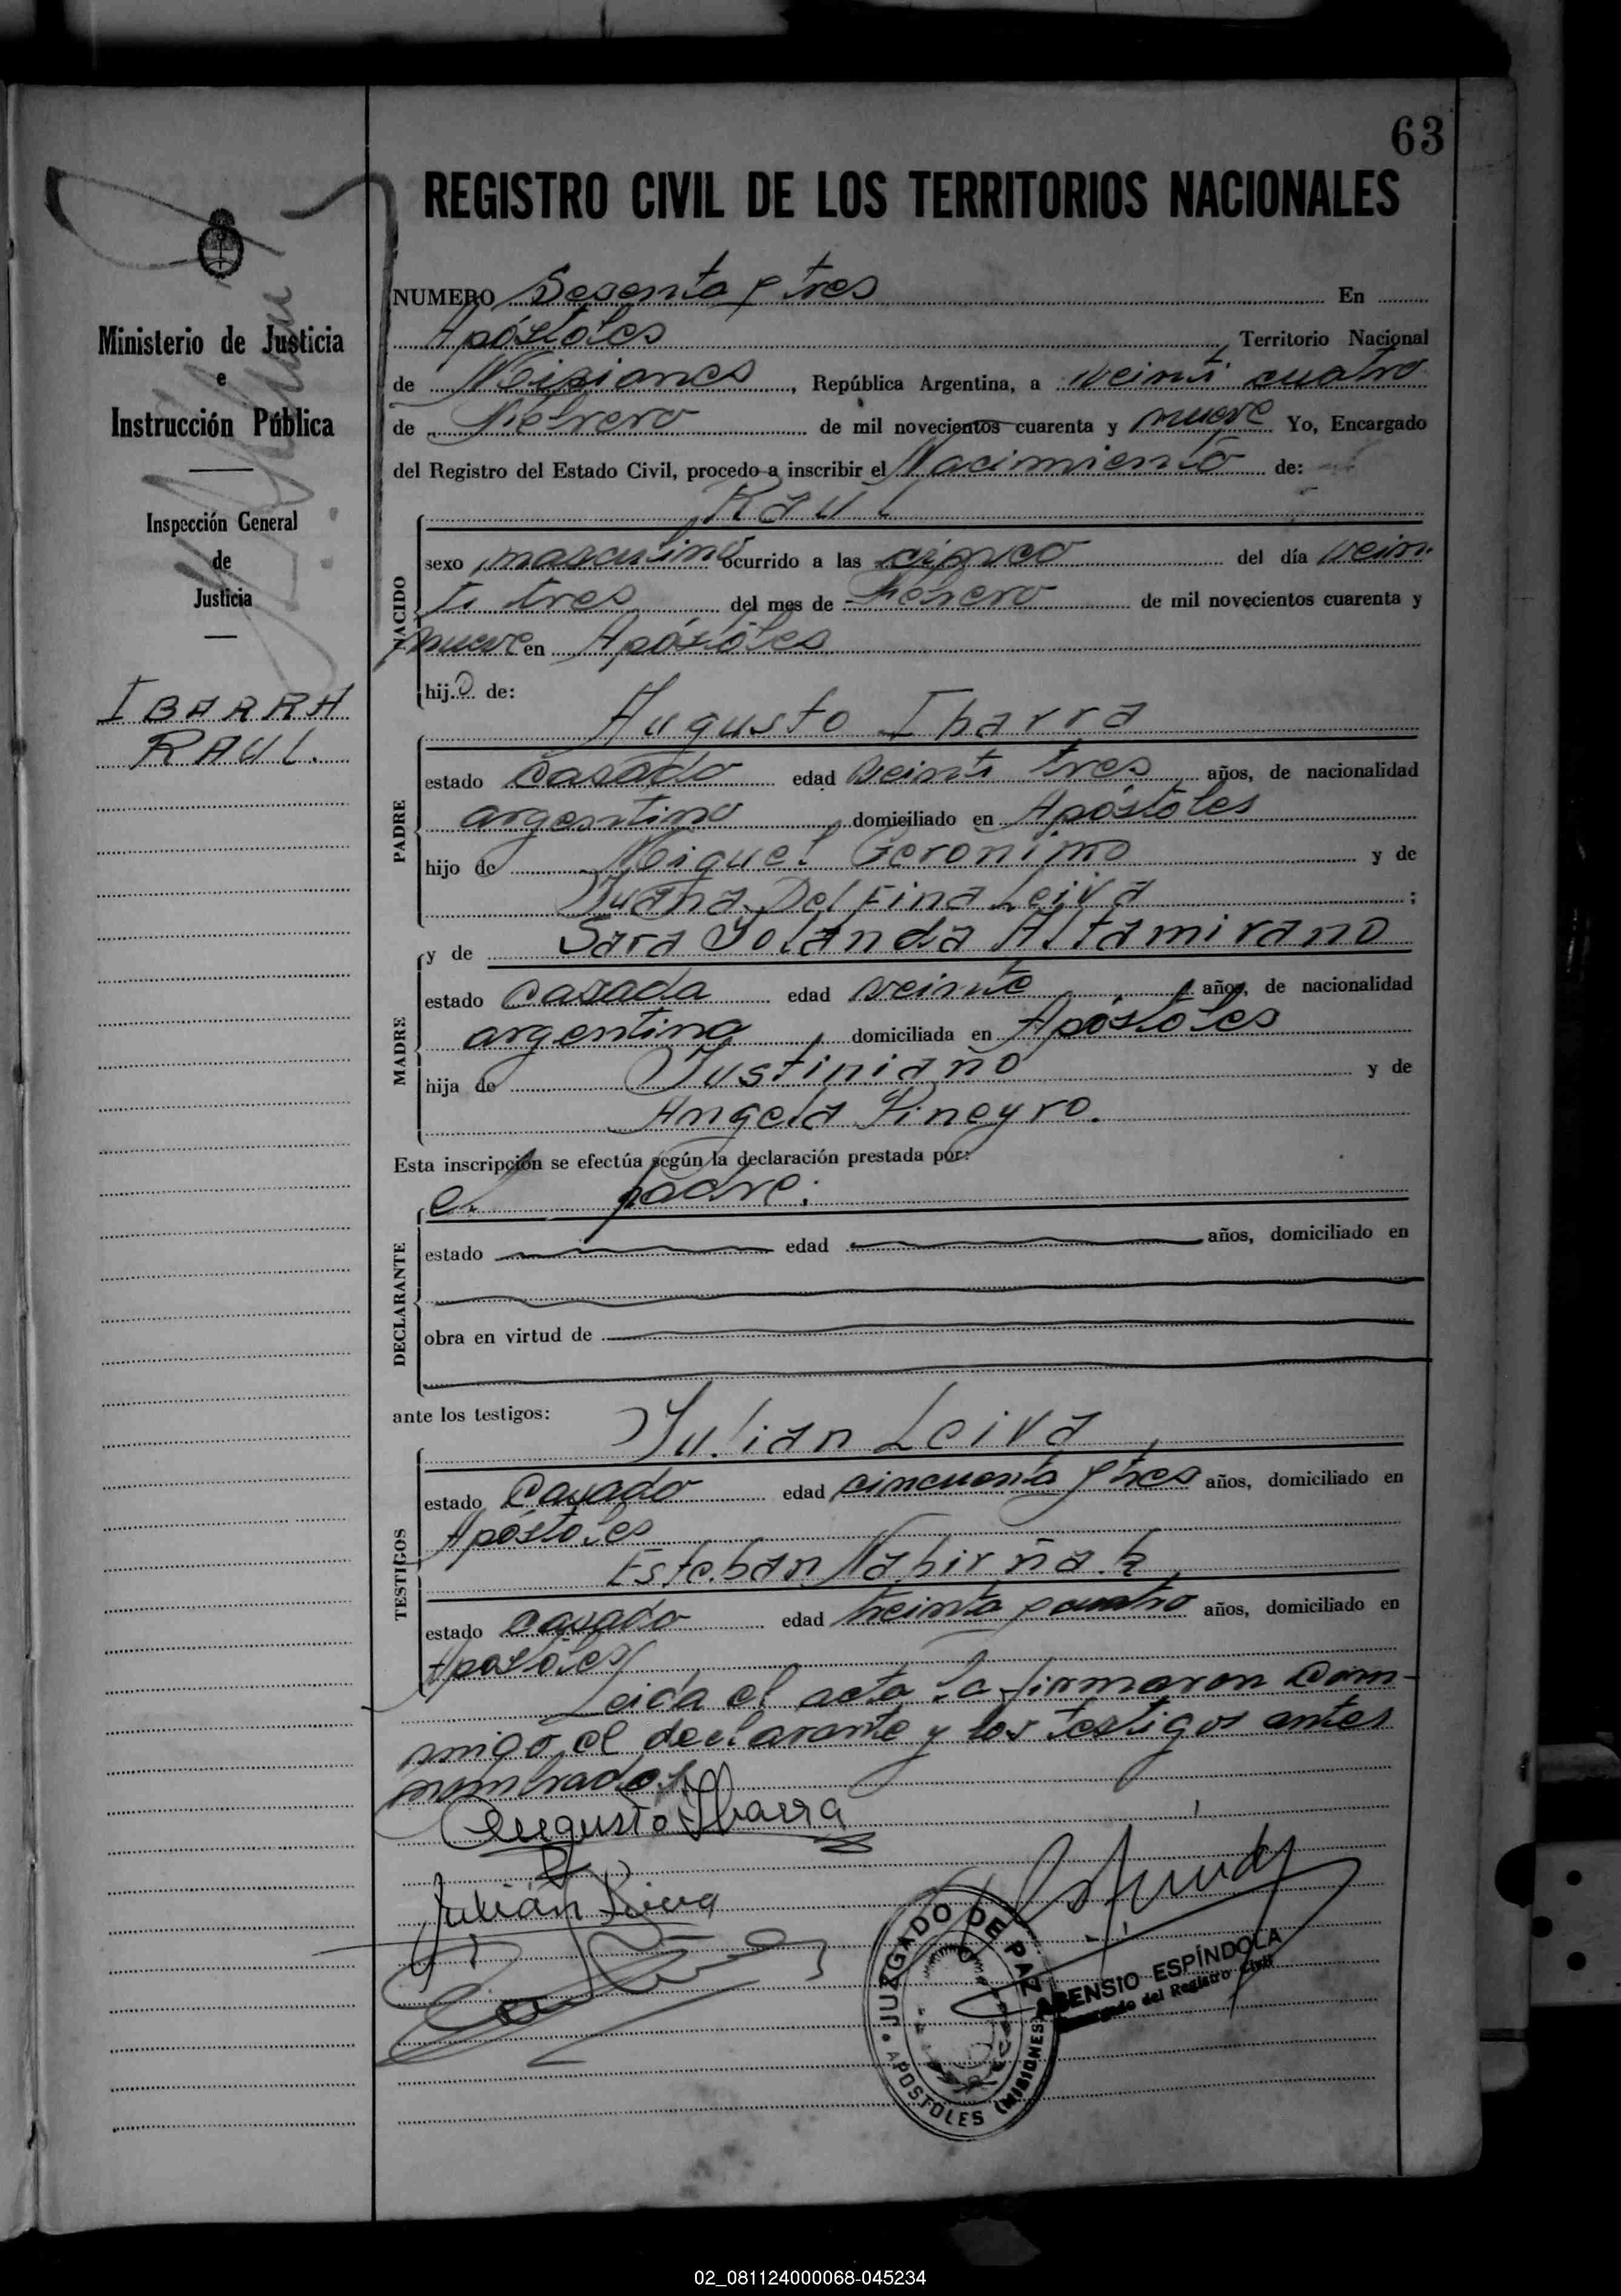 63
REGISTRO CIVIL DE LOS TERRITORIOS NACIONALES
NUMERO Sesenta y tres En
Apóstoles, Territorio Nacional
de Misiones, República Argentina, a veinti cuatro
de Febrero de mil novecientos cuarenta y nueve Yo, Encargado
del Registro del Estado Civil, procedo a inscribir el Nacimiento de:
Raul
NACIDO
sexo masculino ocurrido a las cinco del día vein
ti tres del mes de Febrero de mil novecientos cuarenta y
nueve en Apóstoles
hijo de:
Augusto Ibarra
PADRE
estado Casado edad veinti tres años, de nacionalidad
argentino domiciliado en Apóstoles
hijo de Miguel Geronimo y de
Juana Delfina Leiva;
y de Sara Yolanda Altamirano
MADRE
estado Casada edad veinte años, de nacionalidad
argentina, domiciliada en Apóstoles
hija de Justiniano y de
Angela Pineyro.
Esta inscripción se efectúa según la declaración prestada por:
el padre.
DECLARANTE
estado edad años, domiciliado en
obra en virtud de
ante los testigos:
Julian Leiva
TESTIGOS
estado Casado edad cincuenta y tres años, domiciliado en
Apóstoles
Esteban Nahirñak
estado casado edad treinta y cuatro años, domiciliado en
Apostoles
Leida el acta la firmaron con-
migo el declarante y los testigos antes
nombrados
Augusto Ibarra
Julián Leiva
JUZGADO DE PAZ
APOSTOLES (MISIONES)
ASENSIO ESPÍNDOLA
Encargado del Registro Civil
Ministerio de Justicia
e
Instrucción Pública
Inspección General
de
Justicia
IBARRA
RAUL.
02_081124000068-045234